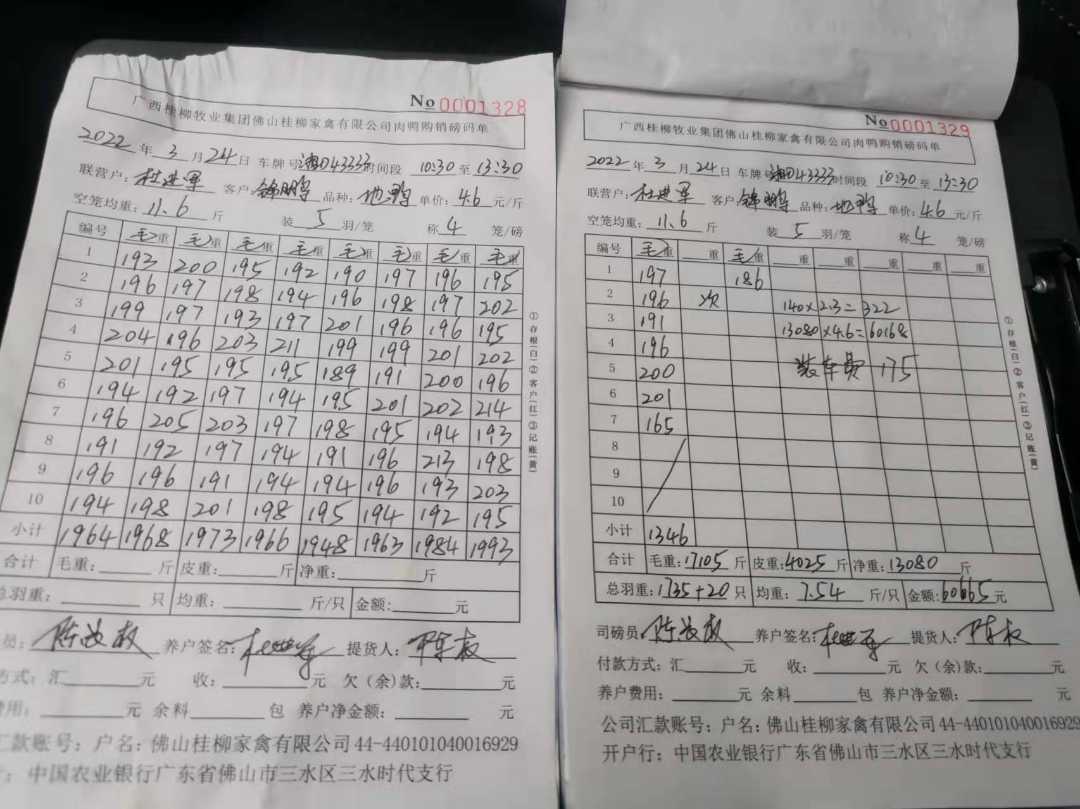 No 0001328
广西桂柳牧业集团佛山桂柳家禽有限公司肉鸭购销磅码单
2022 年 3 月 24 日 车牌号 湘D43333 时间段 10:30 至 13:30
联营户: 杜进军 客户: 锦鹏 品种: 地鸭 单价: 4.6 元/斤
空笼均重: 11.6 斤 装 5 羽/笼 称 4 笼/磅
编号 毛重 毛重 毛重 毛重 毛重 毛重 毛重 毛重
1 193 200 195 192 190 197 196 195
2 196 197 198 194 196 198 197 202
3 199 197 193 197 201 196 196 195
4 204 196 203 211 199 199 201 202
5 201 195 195 195 189 191 200 196
6 194 192 197 194 195 201 202 214
7 196 205 203 197 198 195 194 193
8 191 192 197 194 191 196 213 198
9 196 196 191 194 194 196 193 203
10 194 198 201 198 195 194 192 195
小计 1964 1968 1973 1966 1948 1963 1984 1993
合计 毛重: 斤 皮重: 斤 净重: 斤
总羽重: 只 均重: 斤/只 金额: 元
员: 养户签名: 提货人:
方式: 汇 元 收: 元 欠(余)款: 元
费用: 元 余料 包 养户净金额: 元
汇款账号: 户名: 佛山桂柳家禽有限公司44-440101040016929
行: 中国农业银行广东省佛山市三水区三水时代支行
①存根(白)②客户(红)③记账(黄)
No 0001329
广西桂柳牧业集团佛山桂柳家禽有限公司肉鸭购销磅码单
2022 年 3 月 24 日 车牌号 湘D43333 时间段 10:30 至 13:30
联营户: 杜进军 客户: 锦鹏 品种: 地鸭 单价: 4.6 元/斤
空笼均重: 11.6 斤 装 5 羽/笼 称 4 笼/磅
编号 毛重 重 毛重 重 重 重 重 重
1 197 186
2 196 次 140×2.3=322
3 191 13080×4.6=60168
4 196
5 200 装车费 175
6 201
7 165
8
9
10
小计 1346
合计 毛重: 17105 斤 皮重: 4025 斤 净重: 13080 斤
总羽重: 1735+20 只 均重: 7.54 斤/只 金额: 60665 元
司磅员: 养户签名: 提货人:
付款方式: 汇 元 收: 元 欠(余)款: 元
养户费用: 元 余料 包 养户净金额: 元
公司汇款账号: 户名: 佛山桂柳家禽有限公司44-440101040016929
开户行: 中国农业银行广东省佛山市三水区三水时代支行
①存根(白)②客户(红)③记账(黄)